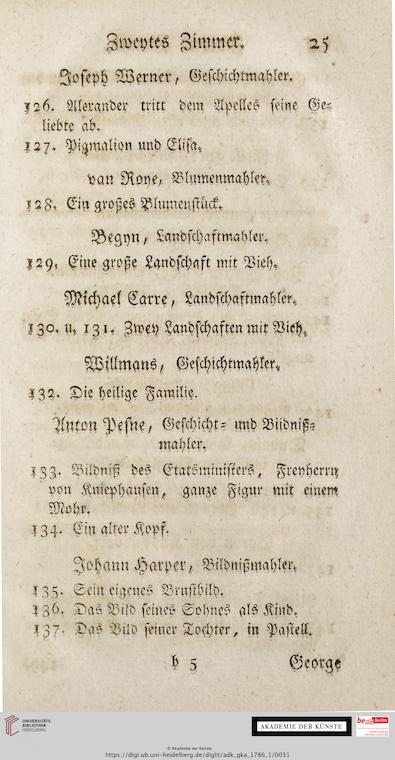 Zweytes Zimmer. 25
Joseph Werner, Geschichtmahler.
126. Alexander tritt dem Apelles seine Ge-
liebte ab.
127. Pigmalion und Elisa.
van Roye, Blumenmahler.
128. Ein großes Blumenstück.
Begyn, Landschaftmahler.
129. Eine große Landschaft mit Vieh.
Michael Carre, Landschaftmahler.
130. u. 131. Zwey Landschaften mit Vieh.
Willmans, Geschichtmahler.
132. Die heilige Familie.
Anton Pesne, Geschicht- und Bildniß-
mahler.
133. Bildniß des Etatsministers, Freyherrn
von Kniephausen, ganze Figur mit einem
Mohr.
134. Ein alter Kopf.
Johann Harper, Bildnißmahler.
135. Sein eigenes Brustbild.
136. Das Bild seines Sohnes als Kind.
137. Das Bild seiner Tochter, in Pastell.
b 5 George
UNIVERSITÄTS-
BIBLIOTHEK
HEIDELBERG
AKADEMIE DER KÜNSTE
be Berlin
© Akademie der Künste
https://digi.ub.uni-heidelberg.de/diglit/adk_gka_1786_1/0031